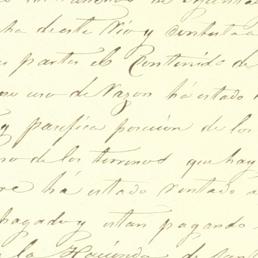 ha de este Rio y
partes el Contenido de
uso de razon ha estado
y pacifica posecion de los
de los terrenos que hay
ha estado rentado a
pagado y estan pagando
la Hacienda de